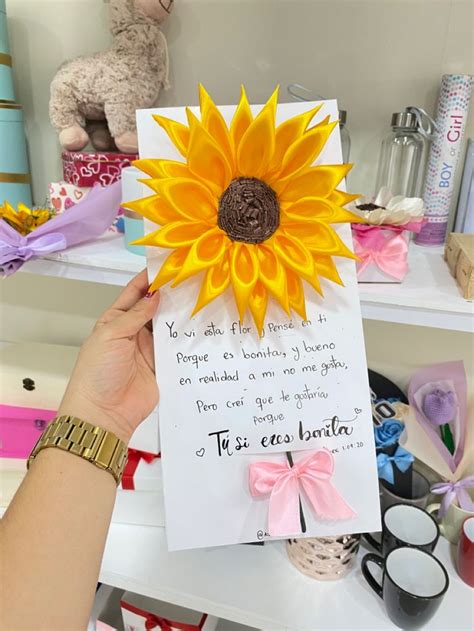 Yo vi esta flor y Pensé en ti
Porque es bonita, y bueno
en realidad a mi no me gusta,
Pero creí que te gustaría
porque
Tú si eres bonita
BOY or Girl